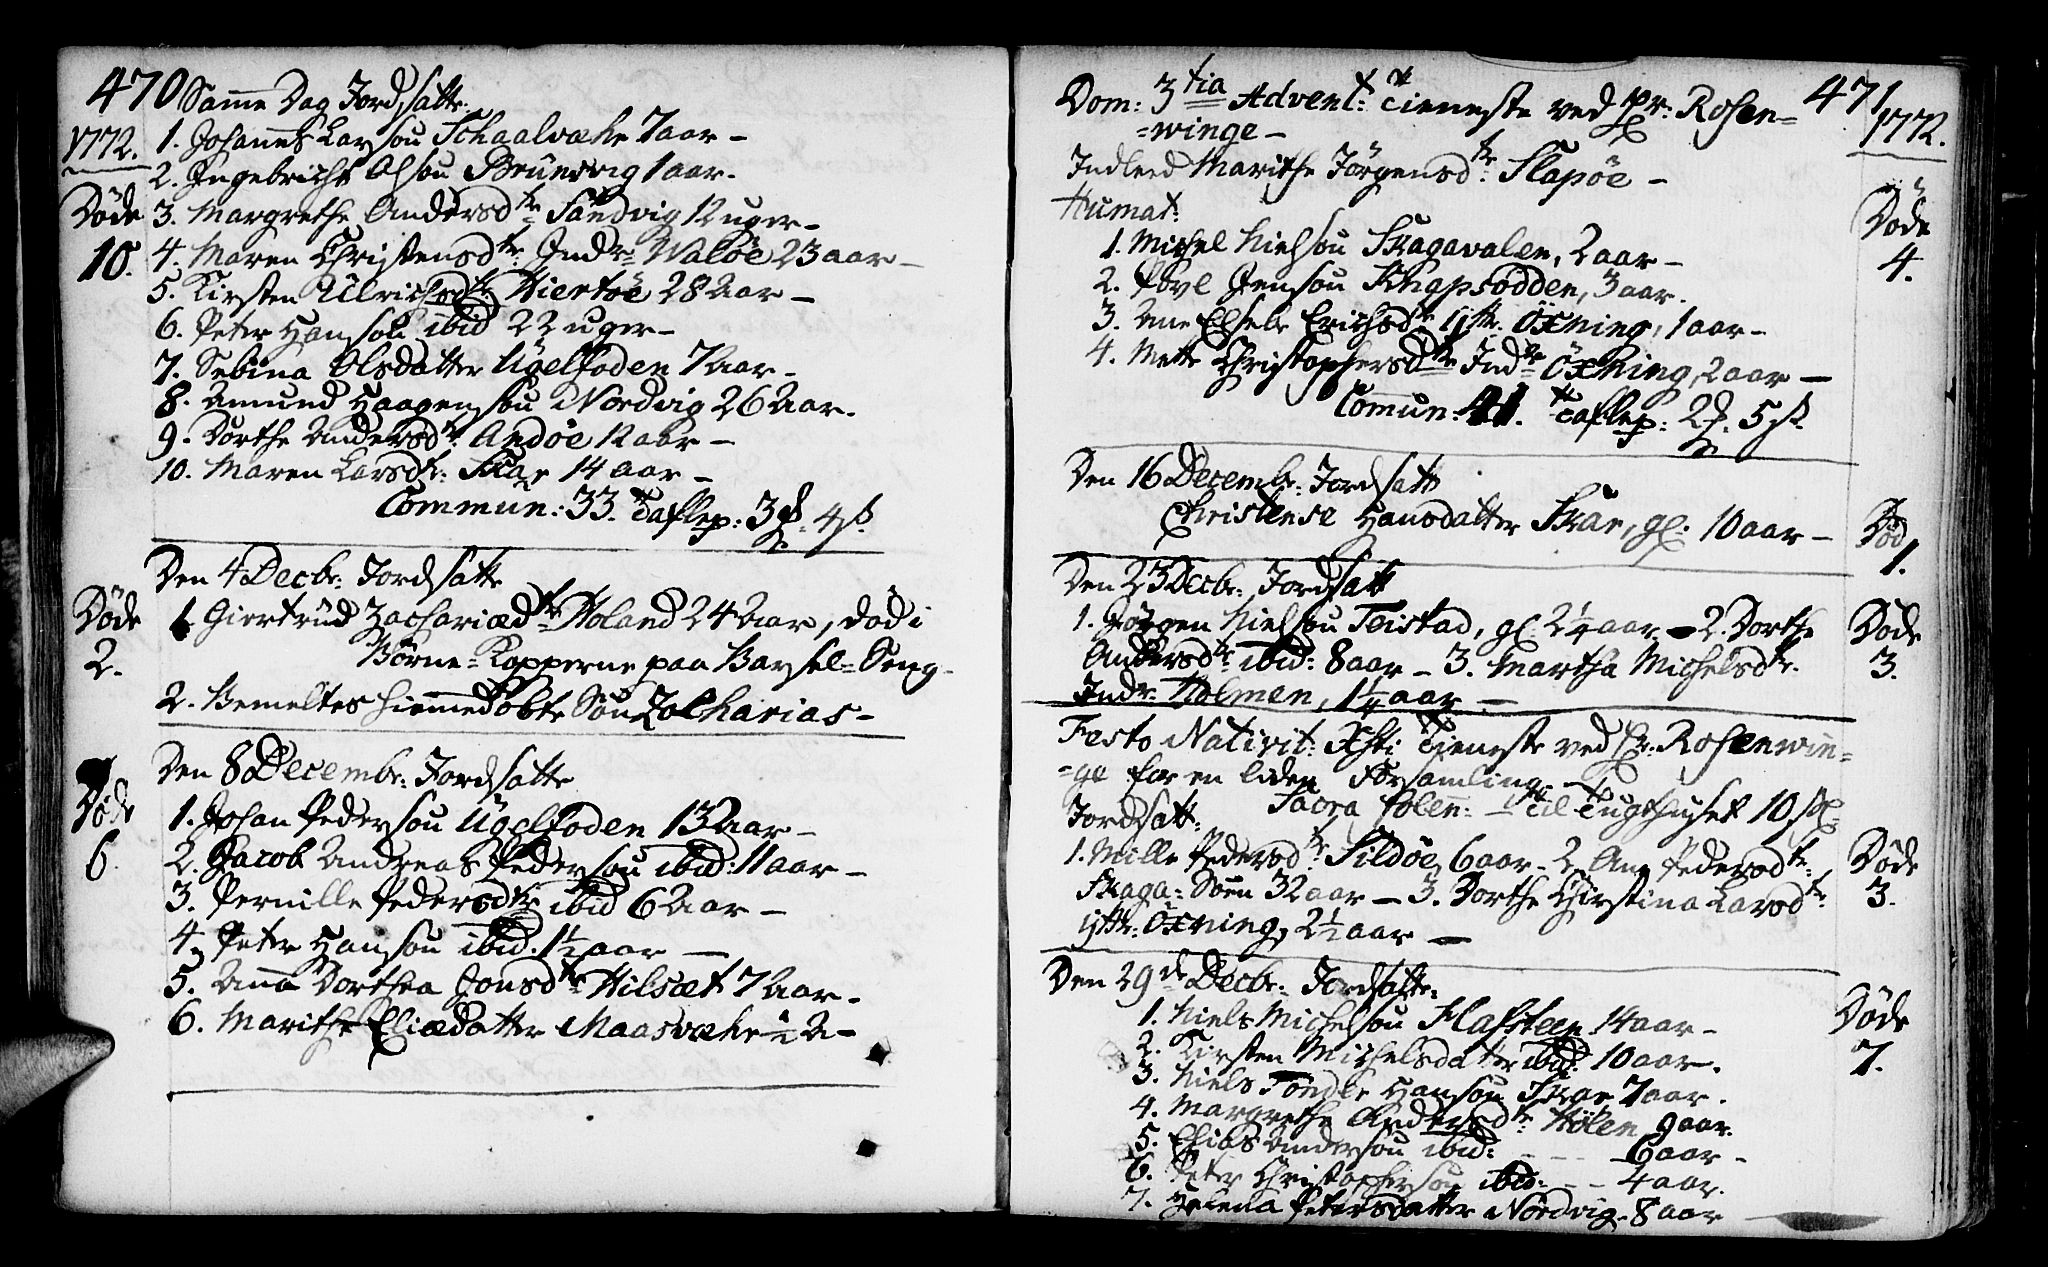 470 Samme Dag Jordsatte
1772.
1. Johannes Larsøn Schaalvæhr 7 aar –
2. Ingebricht Olsøn Brünsvig 1 aar.
Døde
10.
3. Margrethe Andersdtr Sandvig 12 uger –
4. Maren Christensdtr: Indr: Waløe 23 aar –
5. Kirsten Ulrichsdtr Hiertøe 28 Aar –
6. Peter Hansøn ibid 22 uger –
7. Sebina Olsdatter Ügelfoden 7 Aar –
8. Amund Haagensøn Nordvig 26 Aar.
9. Dorthe Andersdtr: Andøe 12 aar –
10. Maren Larsdtr: Skar 14 aar –
Commun: 33. Taflep: 3 4 ß
Den 4 Decbr: Jordsatte
Døde
2.
1. Giertrüd Zachariædtr Holand 24 Aar, død i
Børne-Kopperne paa Barsel-Seng –
2. Bemeltes hiemmedøbte Søn Zacharias –
Den 8 Decembr: Jordsatte
Døde
6.
1. Johan Pedersøn Ügelfoden 13 Aar –
2. Jacob Andreas Pedersøn ibid: 11 aar –
3. Pernille Pedersdtr ibid 6 Aar –
4. Peter Hansøn ibid. 1½ aar –
5. Anna Dorthea Jonsdtr Hilsæt 7 Aar –
6. Marithe Eliædatter Maasvæhr ½ A –
471
1772.
Dom: 3tia Advent: Tieneste ved Hr: Rosen=
=winge –
Indleed Marithe Jørgensd: tr Slapøe –
Humat:
Døde
4.
1. Michel Nielsøn Skagavalen, 2 aar –
2. Povl Jensøn Knapsodden, 3 aar.
3. Ane Elsebe Erichsdtr ijttr. Öxning, 1 aar –
4. Mette Christophersdtr Indr Öxning, 2 aar –
Commun: 41. Taflep: 2 5 ß
Den 16 Decembr: Jordsatt
Christense Hansdatter Skar, gl. 10 aar –
Død
1.
Den 23 Decbr: Jordsatt
1. Jørgen Nielsøn Teistad, gl. 2¼ aar – 2. Dorthe
Andersdtr ibid: 8 aar – 3. Martha Michelsdtr.
Indr: Holmen, 1¼ aar –
Døde
3.
Festo Nativit: Xsti Tieneste ved Hr: Rosenwin=
=ge for en liden Forsamling –
Sacra Solen: – Til Tugthuset 10 ß
Jordsatt:
1. Mille Pedersdtr Sildøe 6 aar – 2. Ane Pedersdtr:
Skaga: Søen 32 aar – 3. Dorthe Christina Larsdtr
ijttr: Öxning, 2½ aar –
Døde
3.
Den 29de Decbr: Jordsatte:
Døde
7.
1. Niels Michelsøn Flafsteen 14 aar –
2. Kirsten Michelsdatter ibid: 10 aar.
3. Niels Tønder Hansøn Skar 7 aar.
4. Margrethe Andersdtr: Hølen 9 aar.
5. Elias Andersøn ibid: – – – 6 aar –
6. Peter Christophersøn ibid: – – 4 aar.
7. Helena Petersdatter Nordvig. 8 aar